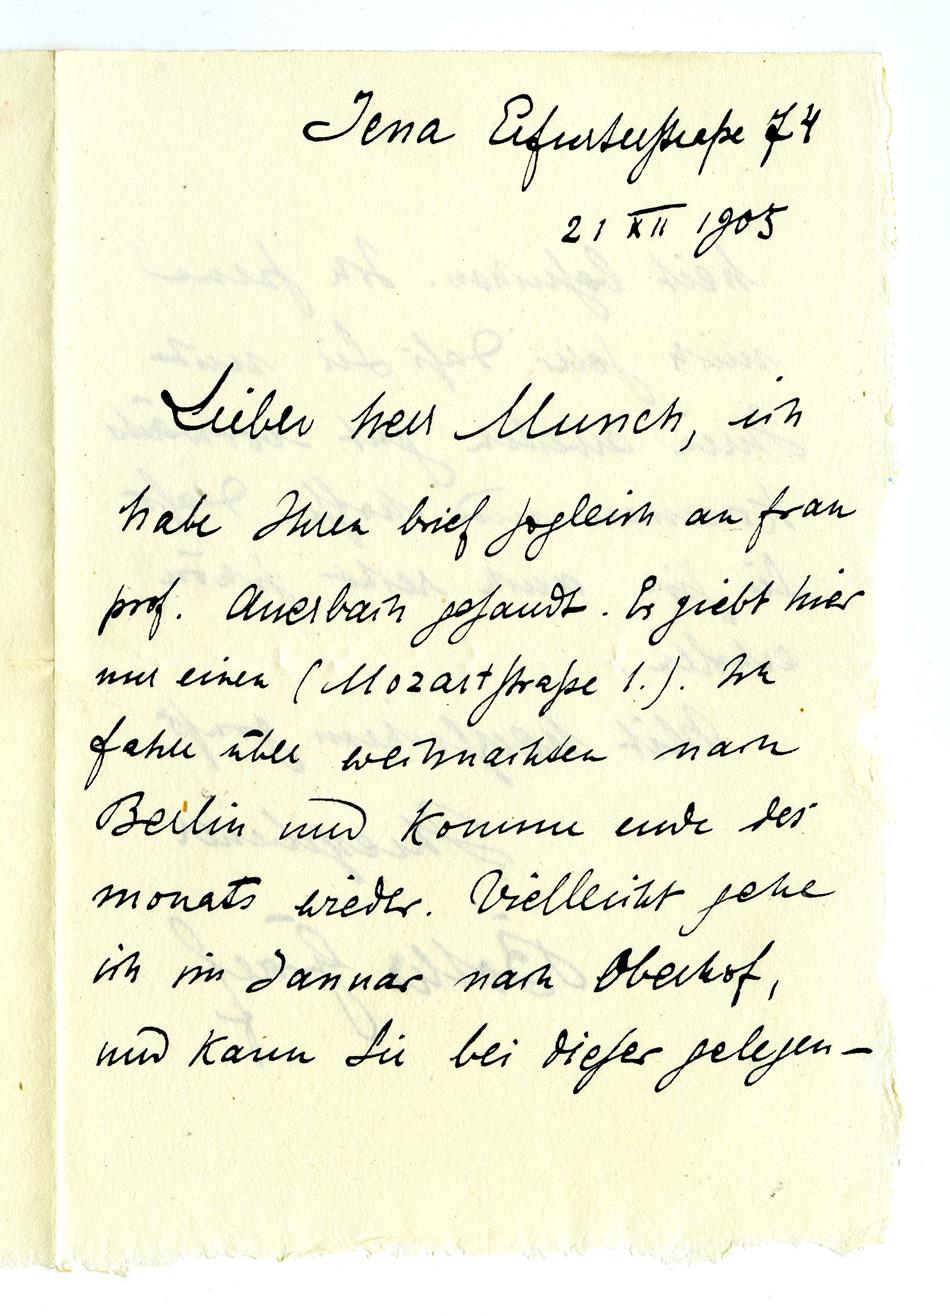 Jena Erfurterstraße 74
21 XII 1905
Lieber herr Munch, ich
habe Ihren brief sogleich an frau
prof. Auerbach gesandt. Es giebt hier
nur einen (Mozartstraße 1.). Ich
fahre über weihnachten nach
Berlin und komme ende des
monats wieder. Vielleicht gehe
ich im Januar nach Oberhof,
und kann Sie bei dieser gelegen-